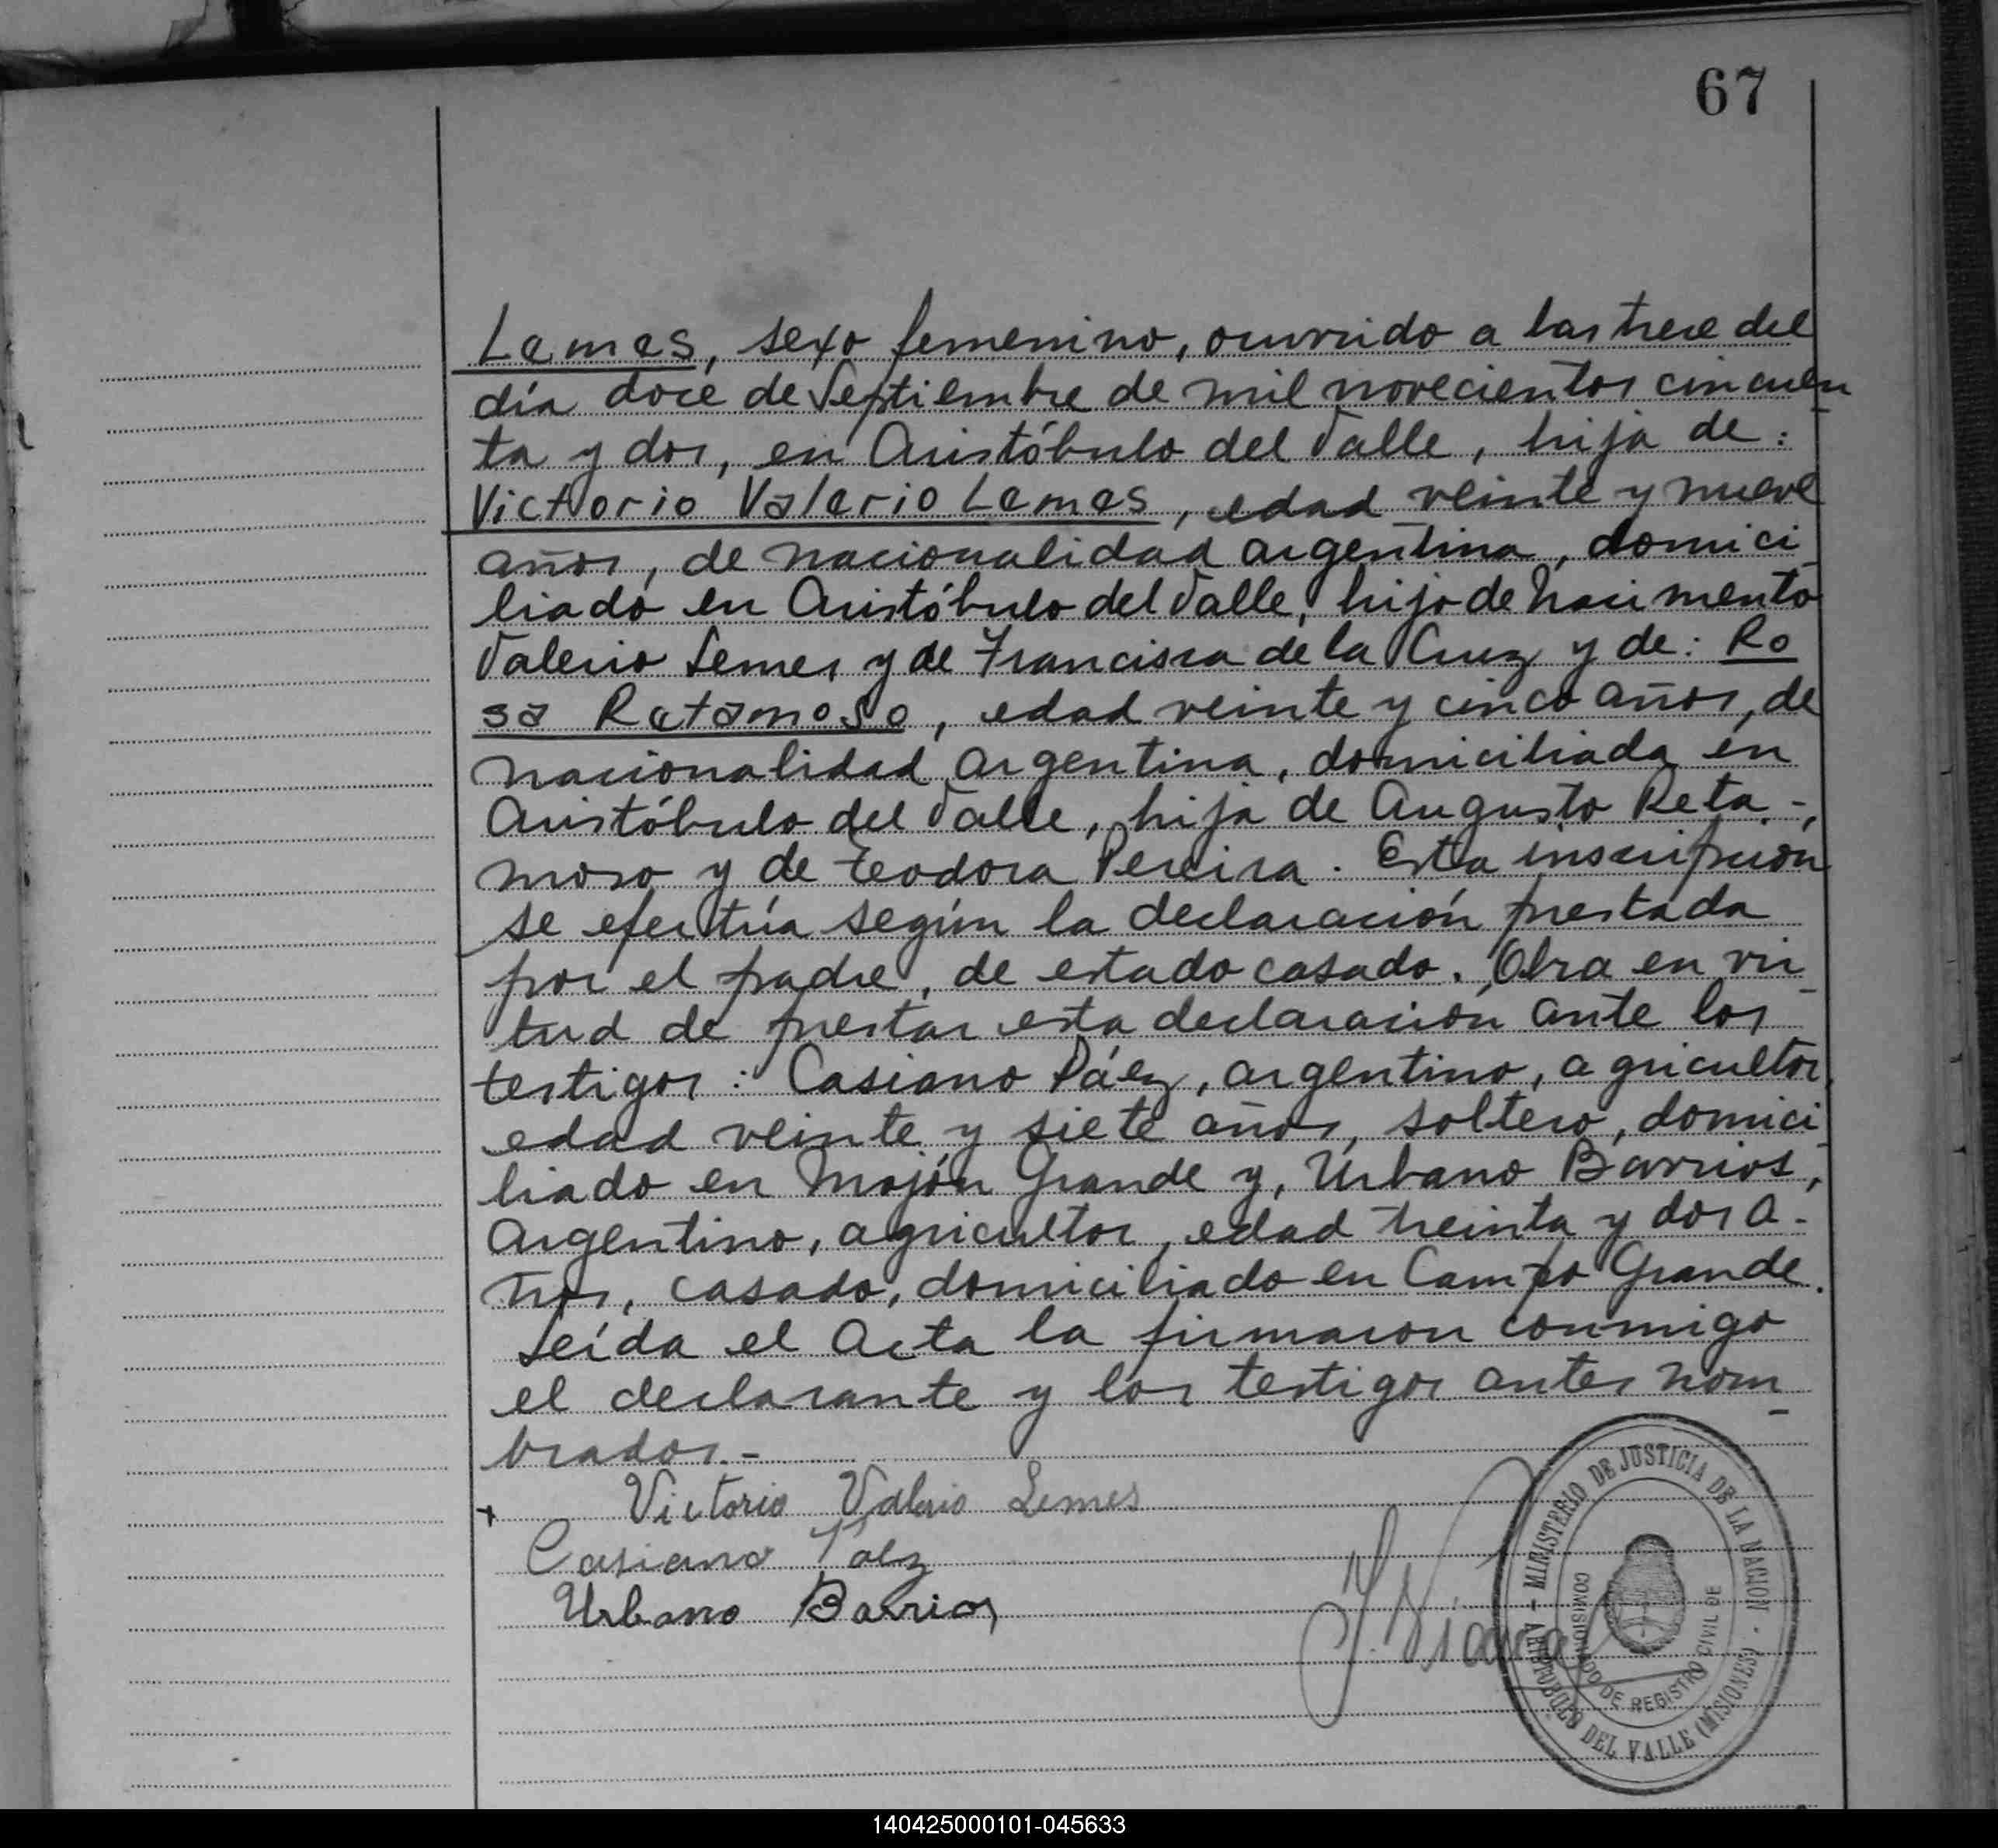 67
Lemes, sexo femenino, ocurrido a las trece del
día doce de Septiembre de mil novecientos cincuen
ta y dos, en Aristóbulo del Valle, hija de:
Victorio Valerio Lemes, edad veinte y nueve
años, de nacionalidad argentina, domici
liado en Aristóbulo del Valle, hijo de Nacimento
Valerio Lemes y de Francisca de la Cruz y de: Ro
sa Retamoso, edad veinte y cinco años, de
nacionalidad argentina, domiciliada en
Aristóbulo del Valle, hija de Augusto Reta-
moso y de Teodora Pereira. Esta inscripción
se efectúa según la declaración prestada
por el padre, de estado casado. Obra en vir
tud de prestar esta declaración ante los
testigos: Casiano Páez, argentino, agricultor,
edad veinte y siete años, soltero, domici
liado en Mojón Grande y, Urbano Barrios,
argentino, agricultor, edad treinta y dos a-
ños, casado, domiciliado en Campo Grande.
Leída el Acta la firmaron conmigo
el declarante y los testigos antes nom
brados.-
+ Victorio Valerio Lemes
Casiano Páez
Urbano Barrios
MINISTERIO DE JUSTICIA DE LA NACION
COMISIONADO DE REGISTRO CIVIL DE
ARISTOBULO DEL VALLE (MISIONES)
140425000101-045633